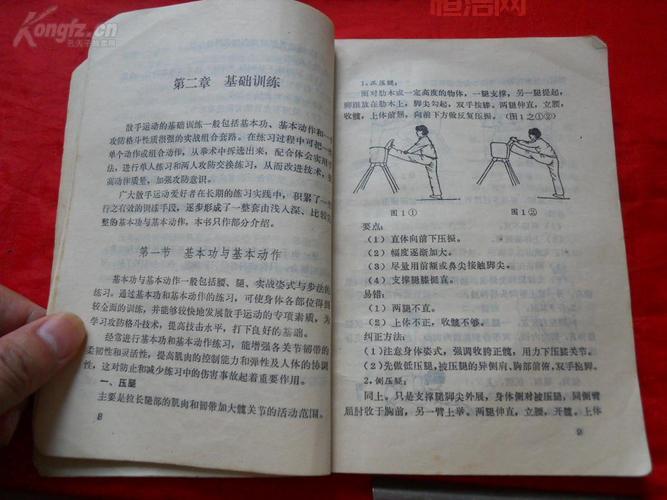 Kongfz.cn
第二章 基础训练
散手运动的基础训练一般包括基本功、基本动作和一
攻防条件性质很强的实战组合套路。在练习过程中可把一
单个动作或组合动作,从拳术中拆选出来,配合体会实用
法,进行单人练习和两人攻防交换练习,从而改进技术,
高动作质量,加强攻防意识。
广大散手运动爱好者在长期的练习实践中,积累了一
行之有效的训练手段,逐步形成了一整套由浅入深、比较
整的基本功与基本动作,本书只作部分介绍。
第一节 基本功与基本动作
基本功与基本动作一般包括腰、腿、实战姿式与步法的
练习。通过基本功和基本动作的练习,可使身体各部位得到
较全面的训练,并能够较快地发展散手运动的专项素质,为
学习攻防格斗技术,提高技击水平,打下良好的基础。
经常进行基本功和基本动作练习,能增强各关节韧带的
柔韧性和灵活性,提高肌肉的控制能力和弹性及人体的协调
性,这对防止和减少练习中的伤害事故起着重要作用。
一、压腿
主要是拉长腿部的肌肉和韧带加大髋关节的活动范围。
8
1.正压腿:
面对肋木或一定高度的物体,一腿支撑,另一腿提起,
脚跟放在肋木上,脚尖勾起,双手按膝。两腿伸直,立腰,
收髋,上体前屈,向前下方做反复压振。(图1之①②)
图1① 图1②
要点:
(1)直体向前下压振。
(2)幅度逐渐加大。
(3)尽量用前额或鼻尖接触脚尖。
(4)支撑腿膝挺直。
易错:
(1)两腿不直。
(2)上体不正,收髋不够。
纠正方法:
(1)注意身体姿式,强调收胯正髋,用力下压膝关节。
(2)先做低压腿,被压腿的异侧肩,胸部前俯,双手抱脚。
2.侧压腿:
同上。只是支撑腿脚尖外展,身体侧对被压腿,同侧臂
屈肘收于胸前,另一臂上举。两腿伸直,立腰,开髋,上体
9